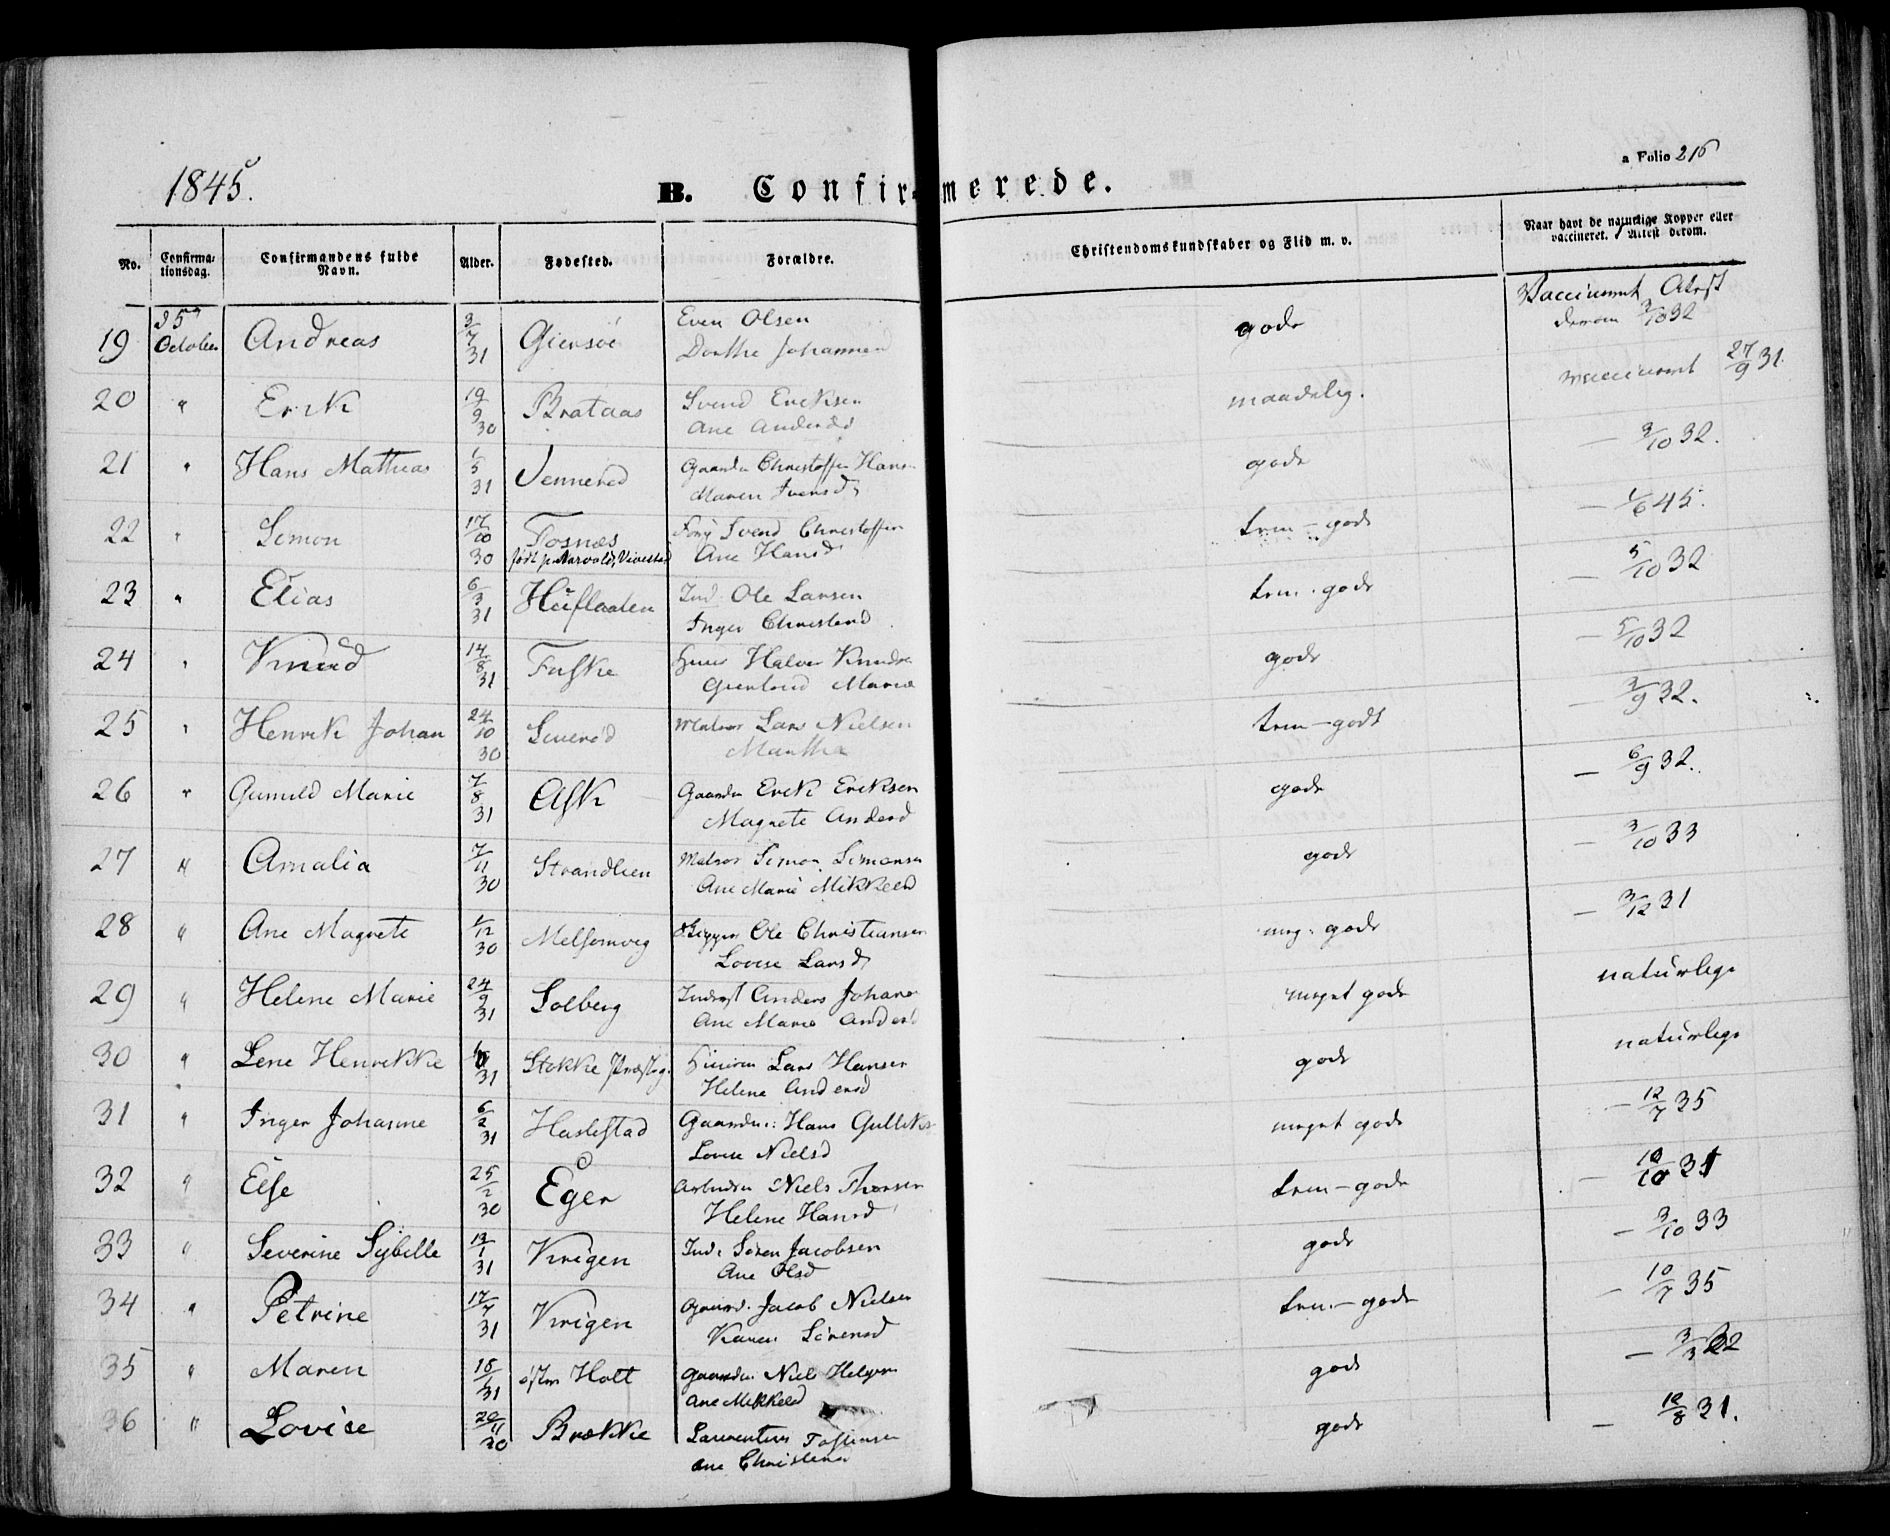 1845.
B. Confirmerede.
a Folio 216
No.
Confirmationsdag.
Confirmandens fulde Navn.
Alder.
Fødested.
Forældre.
Christendomskundskaber og Flid m. v.
Naar havt de naturlige Kopper eller vaccineret. Attest derom.
19 October Andreas 3/7 31 Giersøe Even Olsen gode Vaccineret Attest
Dorthe Johannesd derom 3/10 32
20 " Erik 19/9 30 Brataas Svend Eriksen maadelig. vaccineret 27/9 31
Ane Andersd
21 " Hans Mathias 1/5 31 Vennerød Gaardm Christoffer Hans gode — 3/10 32.
Maren Iversd
22 " Simon 17/10 30 Fosnæs Svend Christoffer tem-gode — 1/6 45.
født p Aarvold, Vivestad Ane Hansd
23 " Elias 6/3 31 Ind. Ole Larsen tem-gode — 5/10 32
Inger Christensd
24 " Knud 14/8 31 Faske Halvor Knuds gode — 5/10 32
Marie
25 " Henrik Johan 24/10 30 Sverrød Matros Lars Nielsen tem-godt — 3/9 32.
Marthe
26 " Gunild Marie 7/8 31 Ask Gaardm Erik Eriksen gode — 6/9 32.
Magrete Andersd
27 " Amalia 7/11 30 Strandlien Matros Simon Simonsen gode — 3/10 33
Ane Marie Mikkelsd
28 " Ane Magrete 1/12 30 Melsomvig Skipper Ole Christiansen meg. gode — 3/12 31
Lovise Larsd
29 " Helene Marie 24/9 31 Solberg Inderst Anders Johans meget gode naturlige
Ane Marie Andersd
30 " Lene Henrikke 31 Stokke Præstg. Lars Hansen gode naturlige
Helene Andersd
31 " Inger Johanne 6/2 31 Haslestad Gaardm: Hans Gulliks meget gode — 12/7 35
Lovise Nielsd
32 " Else 25/2 30 Eger Arbeidsm Niels Thorsen tem-gode — 10/10 31
Helene Hansd
33 " Severine Sybille 13/1 31 Vrigen Ind: Søren Jacobsen gode — 3/10 33
Ane Olsd
34 " Petrine 17/7 31 Vrigen Gaard. Jacob Nielsen tem-gode — 10/7 35
Karen Sørensd
35 " Maren 31 Holt Gaardm. Niels Helgesen gode
Ane Mikkelsd
36 " Lovise 20/11 30 Brække Laurentius Tostensen gode — 12/8 31.
Ane Christensd